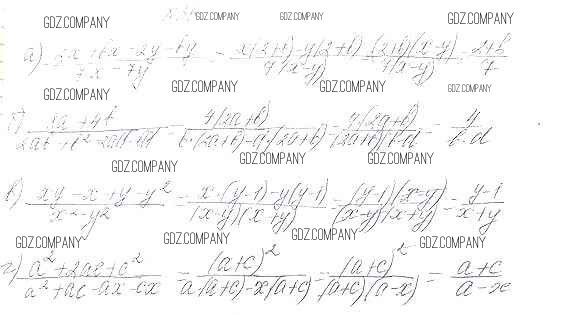 GDZ.COMPANY GDZ.COMPANY GDZ.COMPANY GDZ.COMPANY
а) (2x + bx - 2y - by)/(7x - 7y) = (x(2+b) - y(2+b))/(7(x-y)) = ((2+b)(x-y))/(7(x-y)) = (2+b)/7
GDZ.COMPANY GDZ.COMPANY GDZ.COMPANY
б) = (4(2a+b))/(b·(2a+b)-d·(2a+b)) = (4(2a+b))/((2a+b)(b-d)) = 4/(b-d)
GDZ.COMPANY GDZ.COMPANY GDZ.COMPANY
в) (xy - x + y - y²)/(x² - y²) = (x·(y-1) - y(y-1))/((x-y)(x+y)) = ((y-1)(x-y))/((x-y)(x+y)) = (y-1)/(x+y)
GDZ.COMPANY GDZ.COMPANY GDZ.COMPANY GDZ.COMPANY
г) (a² + 2ac + c²)/(a² + ac - ax - cx) = (a+c)²/(a·(a+c) - x(a+c)) = (a+c)²/((a+c)(a-x)) = (a+c)/(a-x)